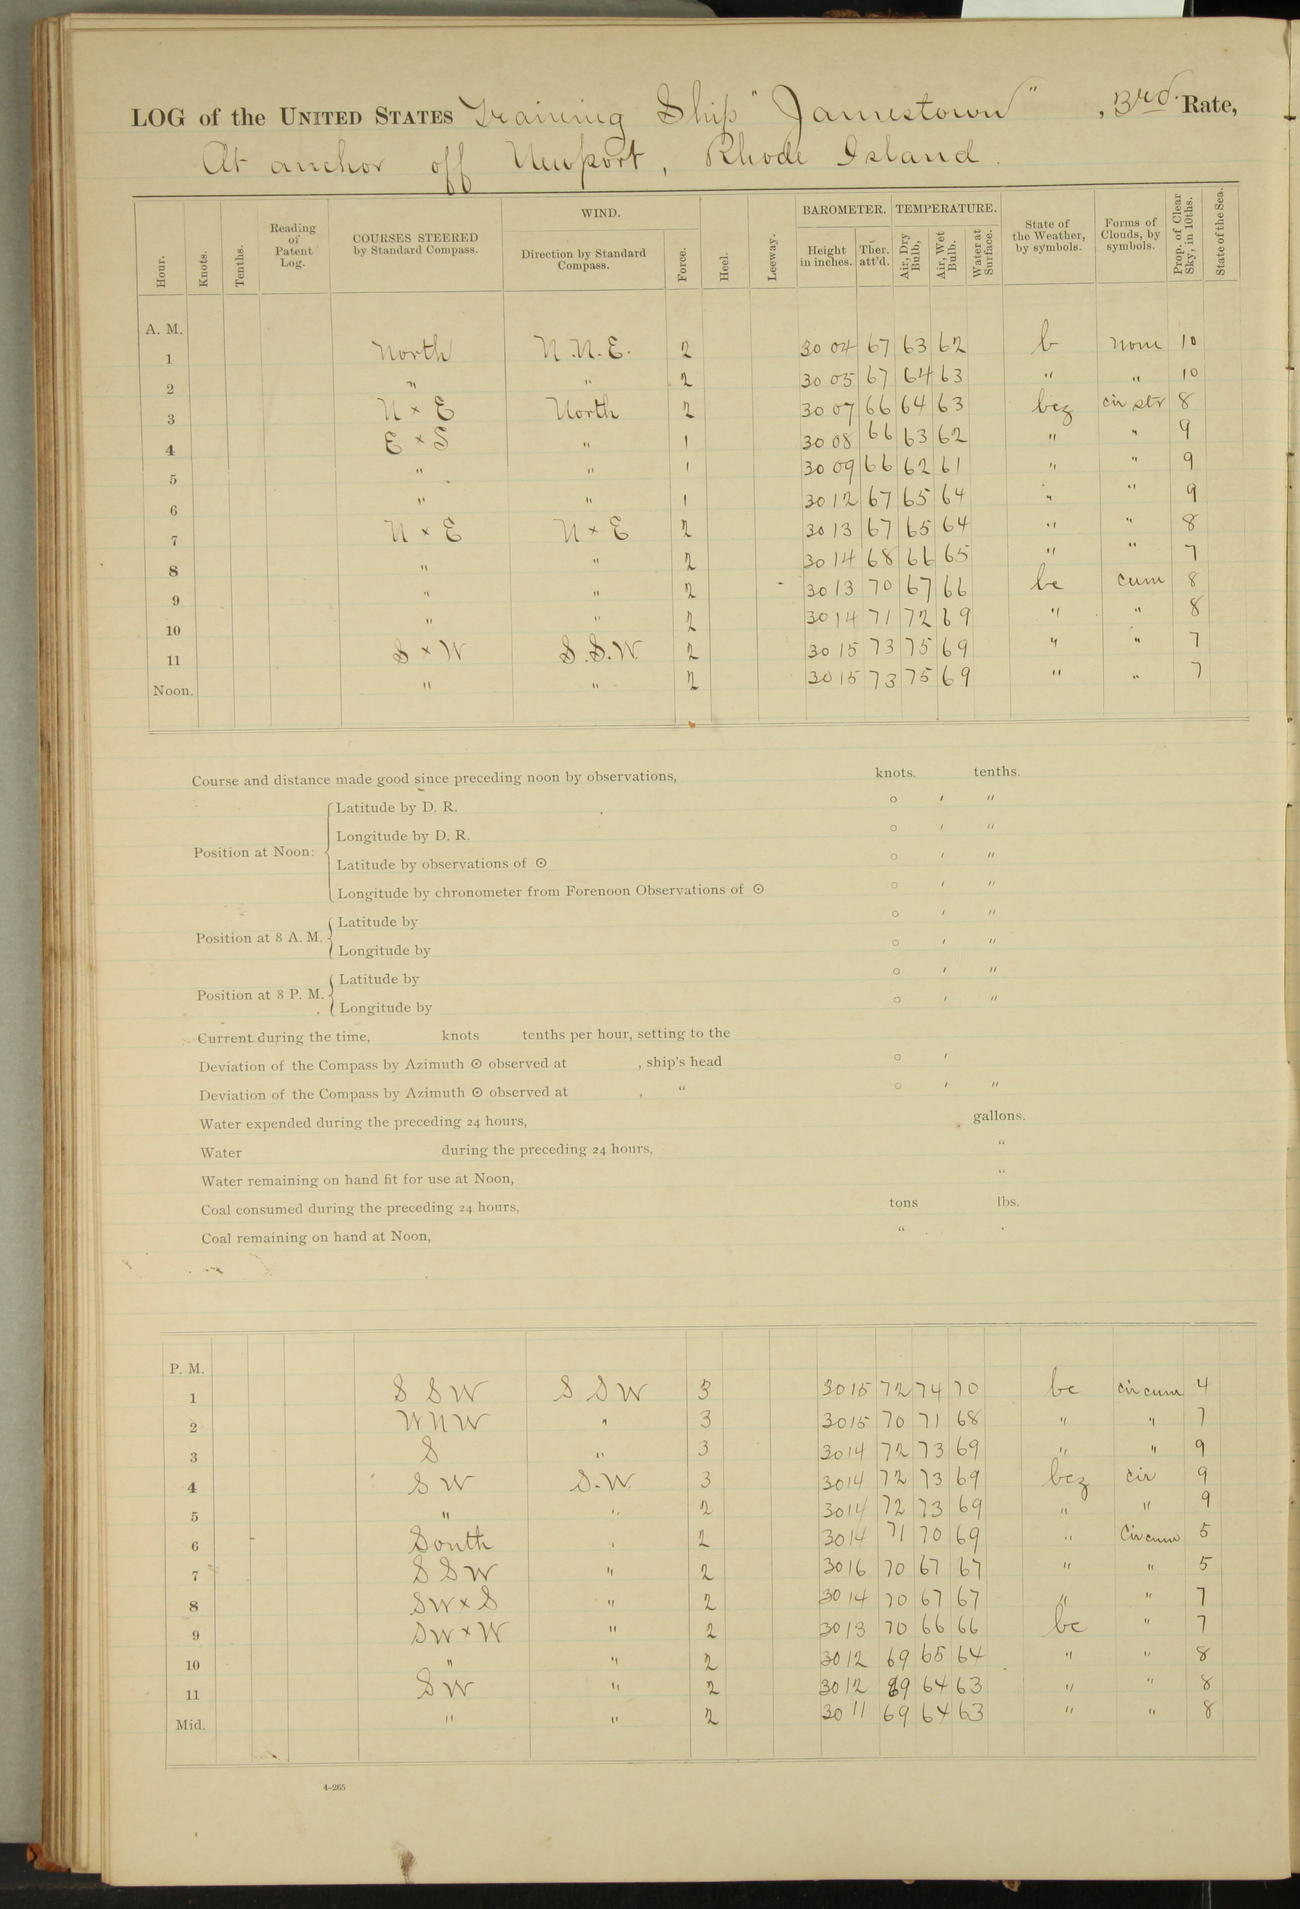 LOG of the UNITED STATES Training Ship "Jamestown", 3rd. Rate,
At anchor off Newport, Rhode Island.
Hour. Knots. Tenths. Reading of Patent Log. COURSES STEERED by Standard Compass. WIND. Direction by Standard Compass. Force. Heel. Leeway. BAROMETER. Height in inches. Ther. att'd. TEMPERATURE. Air, Dry Bulb, Air, Wet Bulb. Water at Surface. State of the Weather, by symbols. Forms of Clouds, by symbols. Prop. of Clear Sky, in 10ths. State of the Sea.
A. M.
1 North N.N.E. 2 30 04 67 63 62 b none 10
2 " " 2 30 05 67 64 63 " " 10
3 N x E North 2 30 07 66 64 63 bcz cir str 8
4 E x S " 1 30 08 66 63 62 " " 9
5 " " 1 30 09 66 62 61 " " 9
6 " " 1 30 12 67 65 64 " " 9
7 N x E N x E 2 30 13 67 65 64 " " 8
8 " " 2 30 14 68 66 65 " " 7
9 " " 2 30 13 70 67 66 bc cum 8
10 " " 2 30 14 71 72 69 " " 8
11 S x W S.S.W. 2 30 15 73 75 69 " " 7
Noon. " " 2 30 15 73 75 69 " " 7
Course and distance made good since preceding noon by observations, knots. tenths.
Position at Noon:
Latitude by D. R. ° ′ ″
Longitude by D. R. ° ′ ″
Latitude by observations of ☉ ° ′ ″
Longitude by chronometer from Forenoon Observations of ☉ ° ′ ″
Position at 8 A. M.
Latitude by ° ′ ″
Longitude by ° ′ ″
Position at 8 P. M.
Latitude by ° ′ ″
Longitude by ° ′ ″
Current during the time, knots tenths per hour, setting to the
Deviation of the Compass by Azimuth ☉ observed at , ship's head ° ′
Deviation of the Compass by Azimuth ☉ observed at , " ° ′ ″
Water expended during the preceding 24 hours, gallons.
Water during the preceding 24 hours, "
Water remaining on hand fit for use at Noon, "
Coal consumed during the preceding 24 hours, tons lbs.
Coal remaining on hand at Noon, "
P. M.
1 S S W S S W 3 30 15 72 74 70 bc cir cum 4
2 W N W " 3 30 15 70 71 68 " " 7
3 S " 3 30 14 72 73 69 " " 9
4 S W S.W. 3 30 14 72 73 69 bcz cir 9
5 " " 2 30 14 72 73 69 " " 9
6 South " 2 30 14 71 70 69 " Cir cum 5
7 S S W " 2 30 16 70 67 67 " " 5
8 SW x S " 2 30 14 70 67 67 " " 7
9 SW x W " 2 30 13 70 66 66 bc " 7
10 " " 2 30 12 69 65 64 " " 8
11 S W " 2 30 12 69 64 63 " " 8
Mid. " " 2 30 11 69 64 63 " " 8
4-265